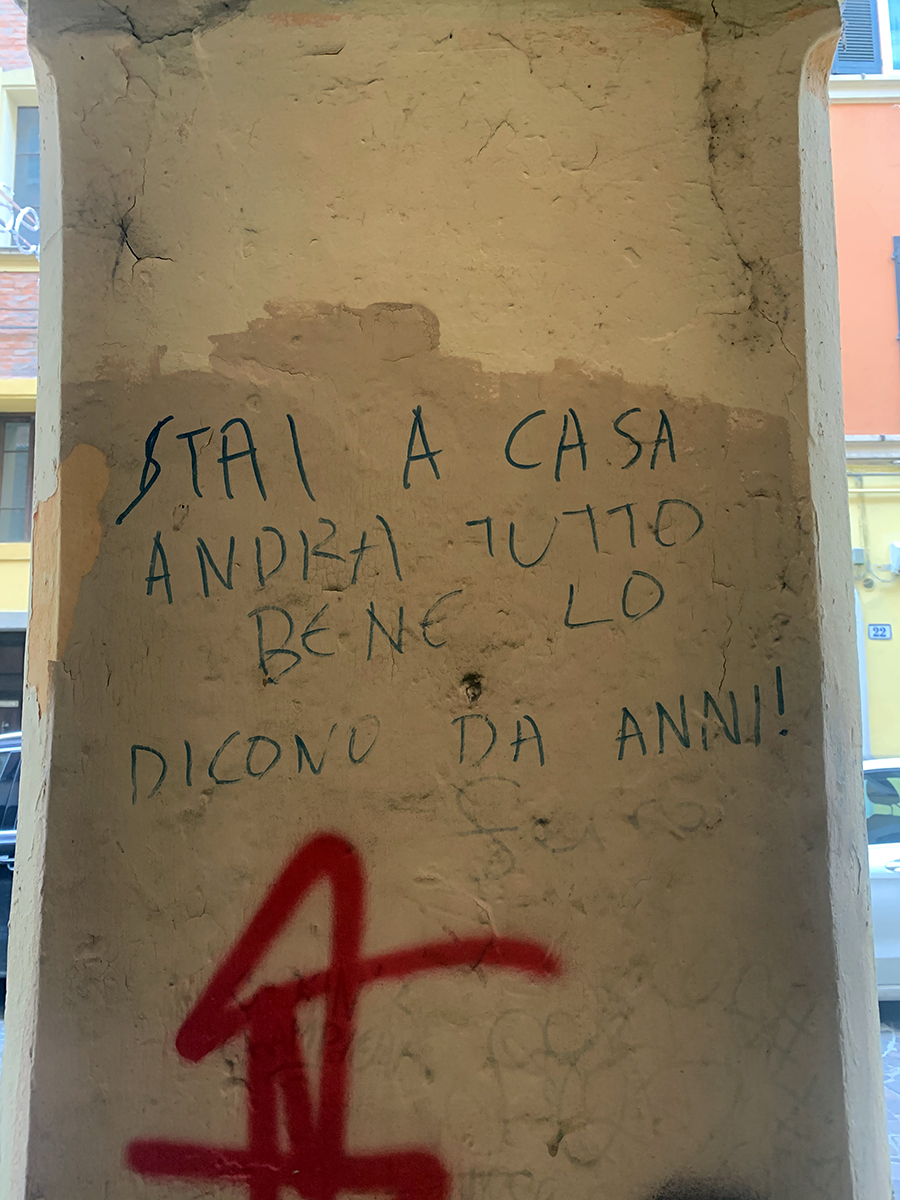 STAI A CASA
ANDRA TUTTO
BENE LO
DICONO DA ANNI!
22